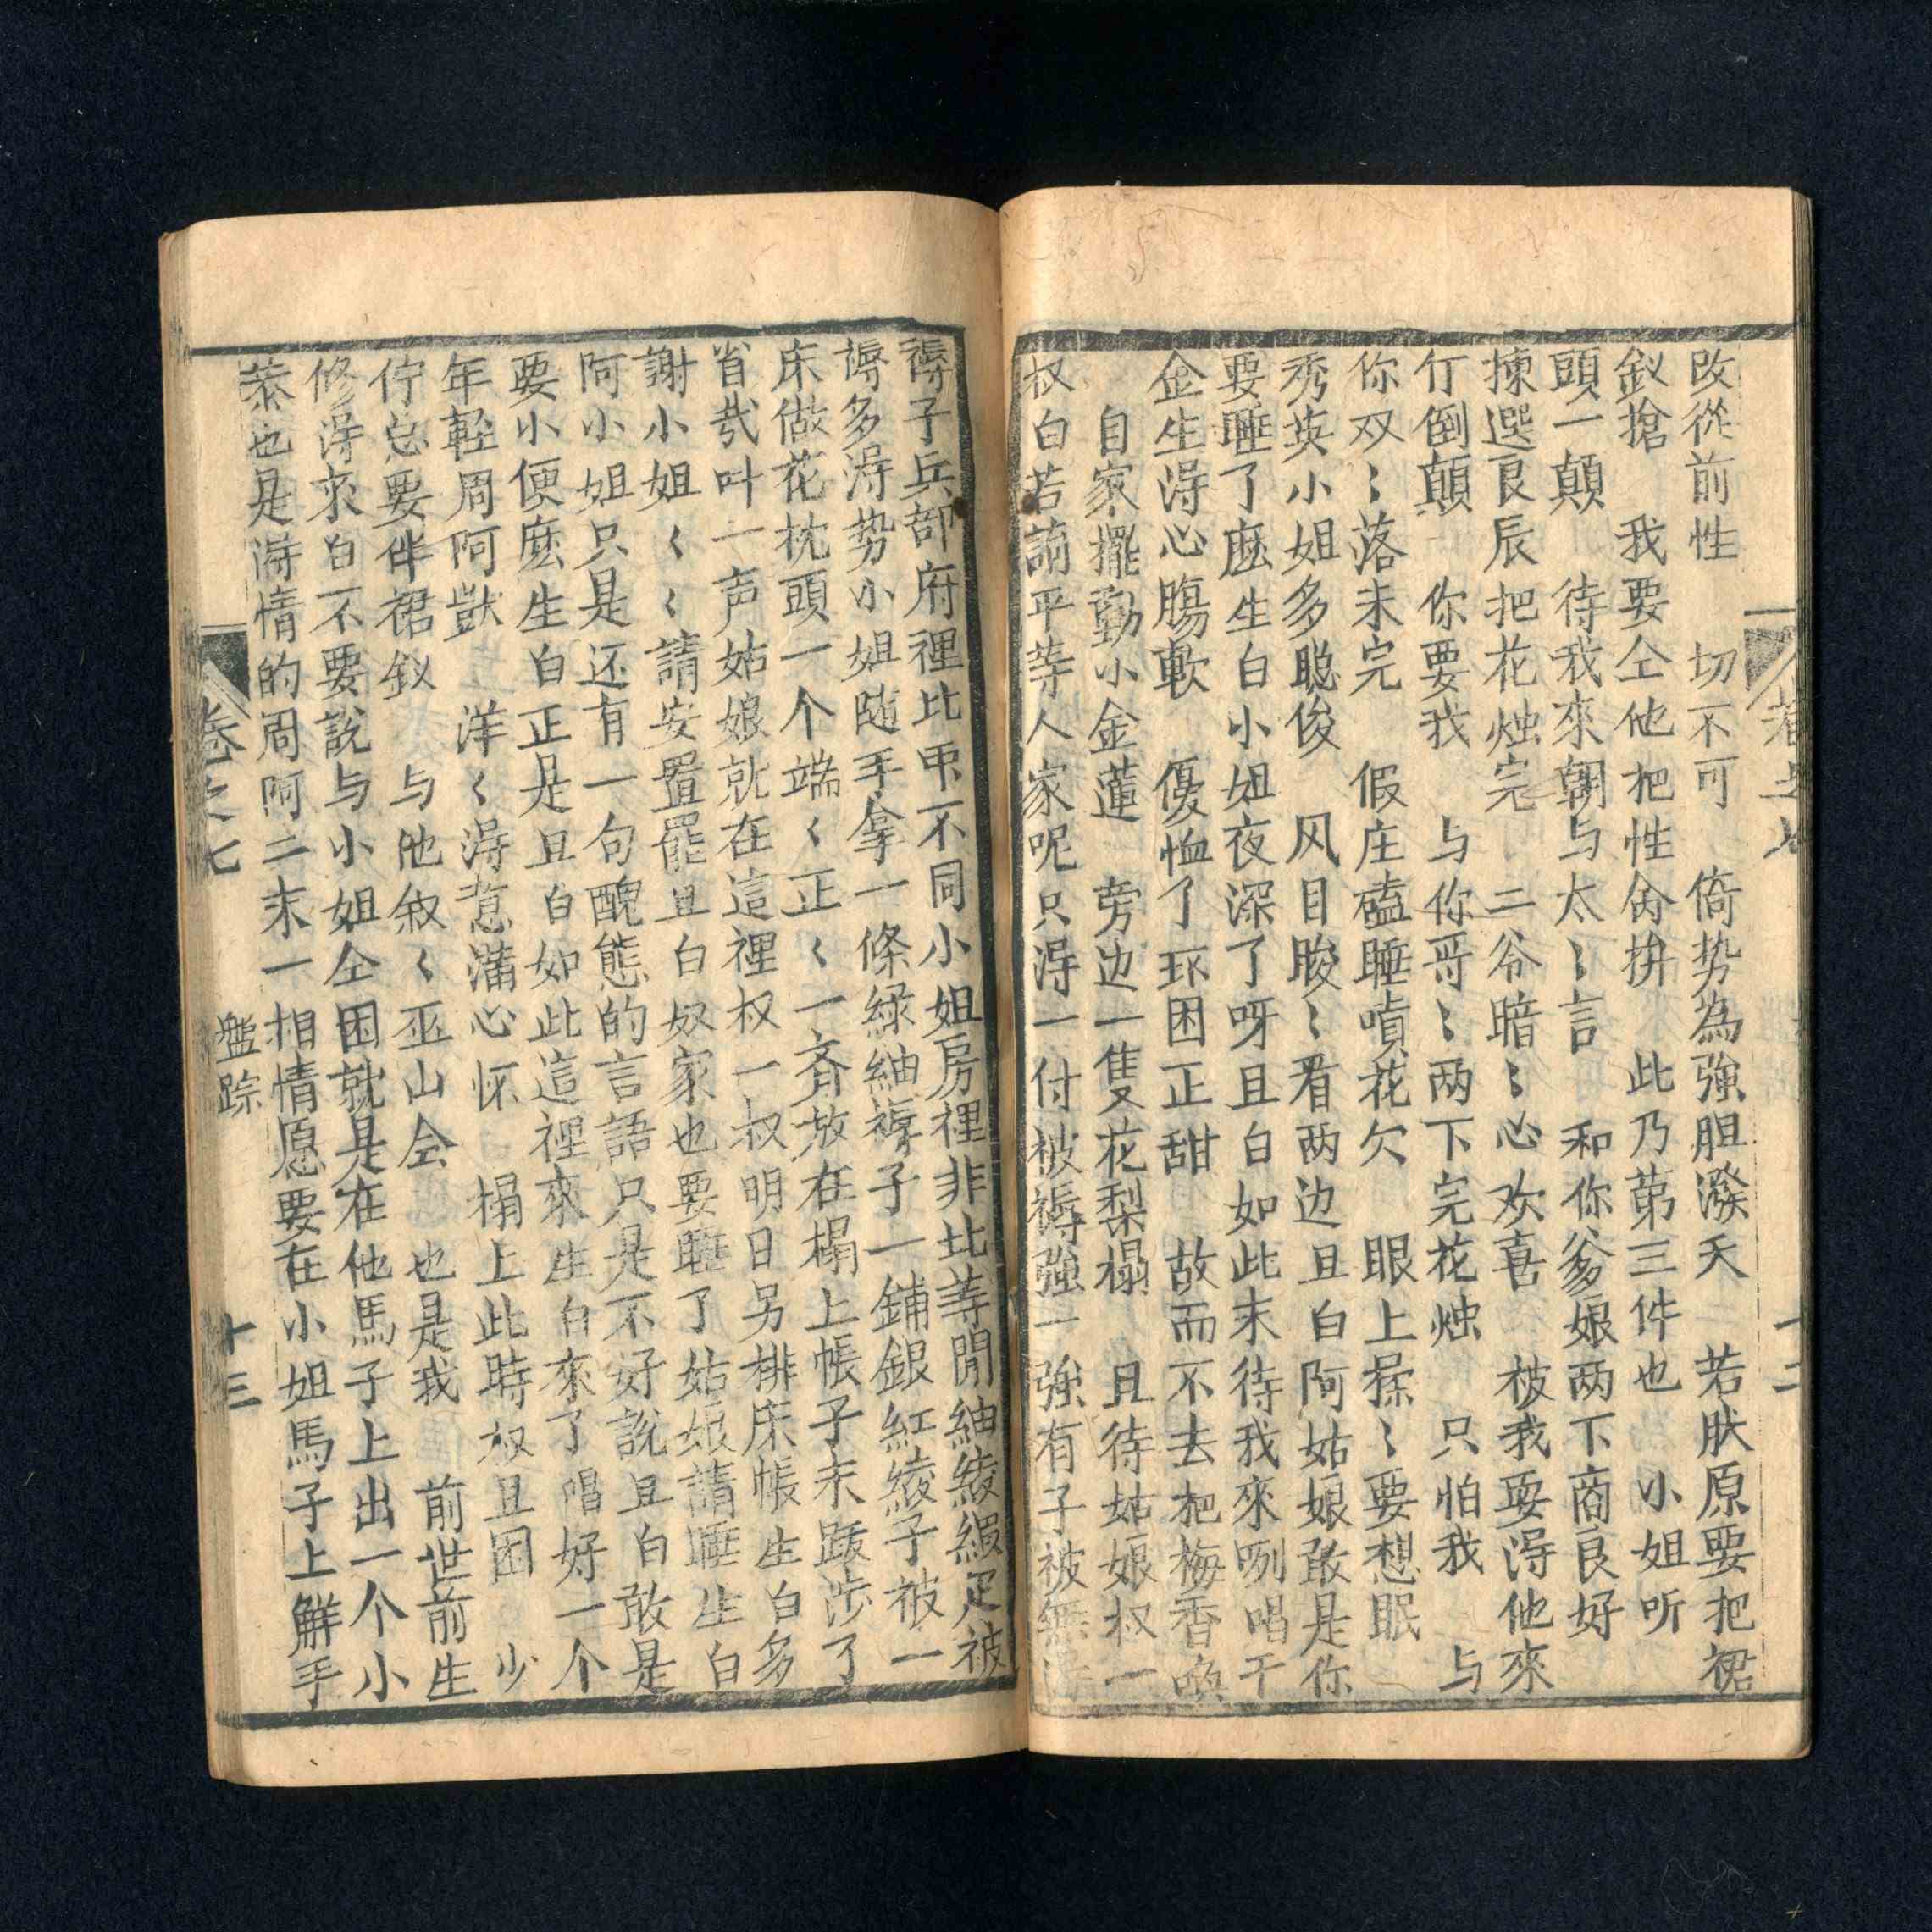 卷之七
十二
改從前性　切不可　倚势為強胆潑天　若肤原要把裙
釵搶　我要仝他把性侖拚　此乃苐三件也　小姐听
頭一顛　待我來朝与太〻言　和你爹娘两下商良好
揀選良辰把花烛完　二爷暗〻心欢喜　被我耍淂他來
仃倒顛　你要我　与你哥〻两下完花烛　只怕我　与
你双〻落未完　假庄磕睡噴花欠　眼上揉〻要想眠
秀英小姐多聪俊　风目睃〻看两边且白阿姑娘敢是你
要睡了麽生白小姐夜深了呀且白如此末待我來咧唱干
金生淂心腸軟　優恤了环困正甜　故而不去把梅香喚
自家擺動小金蓮　旁边一隻花梨榻　且待姑娘叔一
叔白若論平䓁人家呢只淂一付被褥強一強有子被無淂
褥子兵部府裡比不同小姐房裡非比䓁閒紬綾緞疋被
褥多淂势小姐随手拿一條緑紬褥子一鋪銀紅綾子被一
床做花枕頭一个端〻正〻一齐放在榻上帳子末跋涉了
省㢤叶一声姑娘就在這裡叔一叔明日另排床帳生白多
謝小姐〻〻請安置罷且白奴家也要睡了姑娘請睡生白
阿小姐只是还有一句醜態的言語只是不好說且白敢是
要小便麽生白正是且白如此這裡來生白來了唱好一个
年輕周阿獃　洋〻淂意滿心怀　榻上此時叔且困　少
佇忽要伴裙釵　与他叙〻巫山会　也是我　前世前生
修淂來白不要說与小姐仝困就是在他馬子上出一个小
恭也是淂情的周阿二末一相情愿要在小姐馬子上解手
卷之七
盤踪
十三